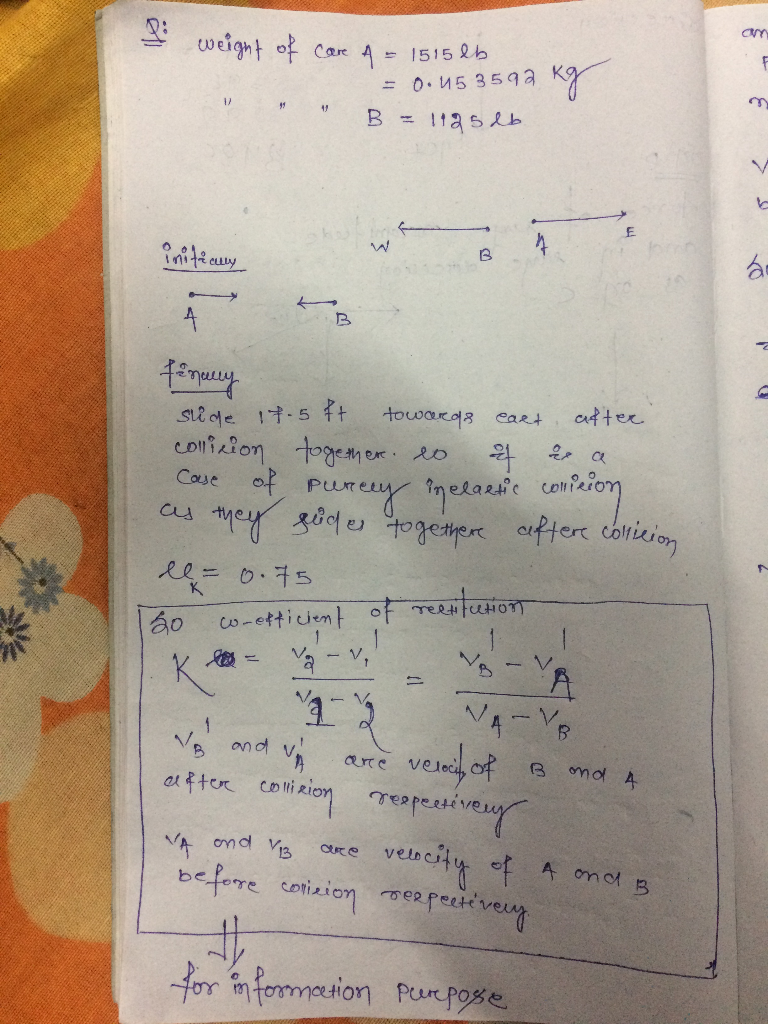 Q: weight of Car A = 1515 lb
= 0.453592 kg
" " " B = 1125 lb
W B A E
initially
A B
finally
slide 17.5 ft towards east after
collision together. so it is a
case of purely inelastic collision
as they slides together after collision
μk = 0.75
So co-efficient of restitution
K = (V2' - V1') / (V1 - V2) = (VB' - VA') / (VA - VB)
VB' and VA' are velocity of B and A
after collision respectively
VA and VB are velocity of A and B
before collision respectively.
for information purpose